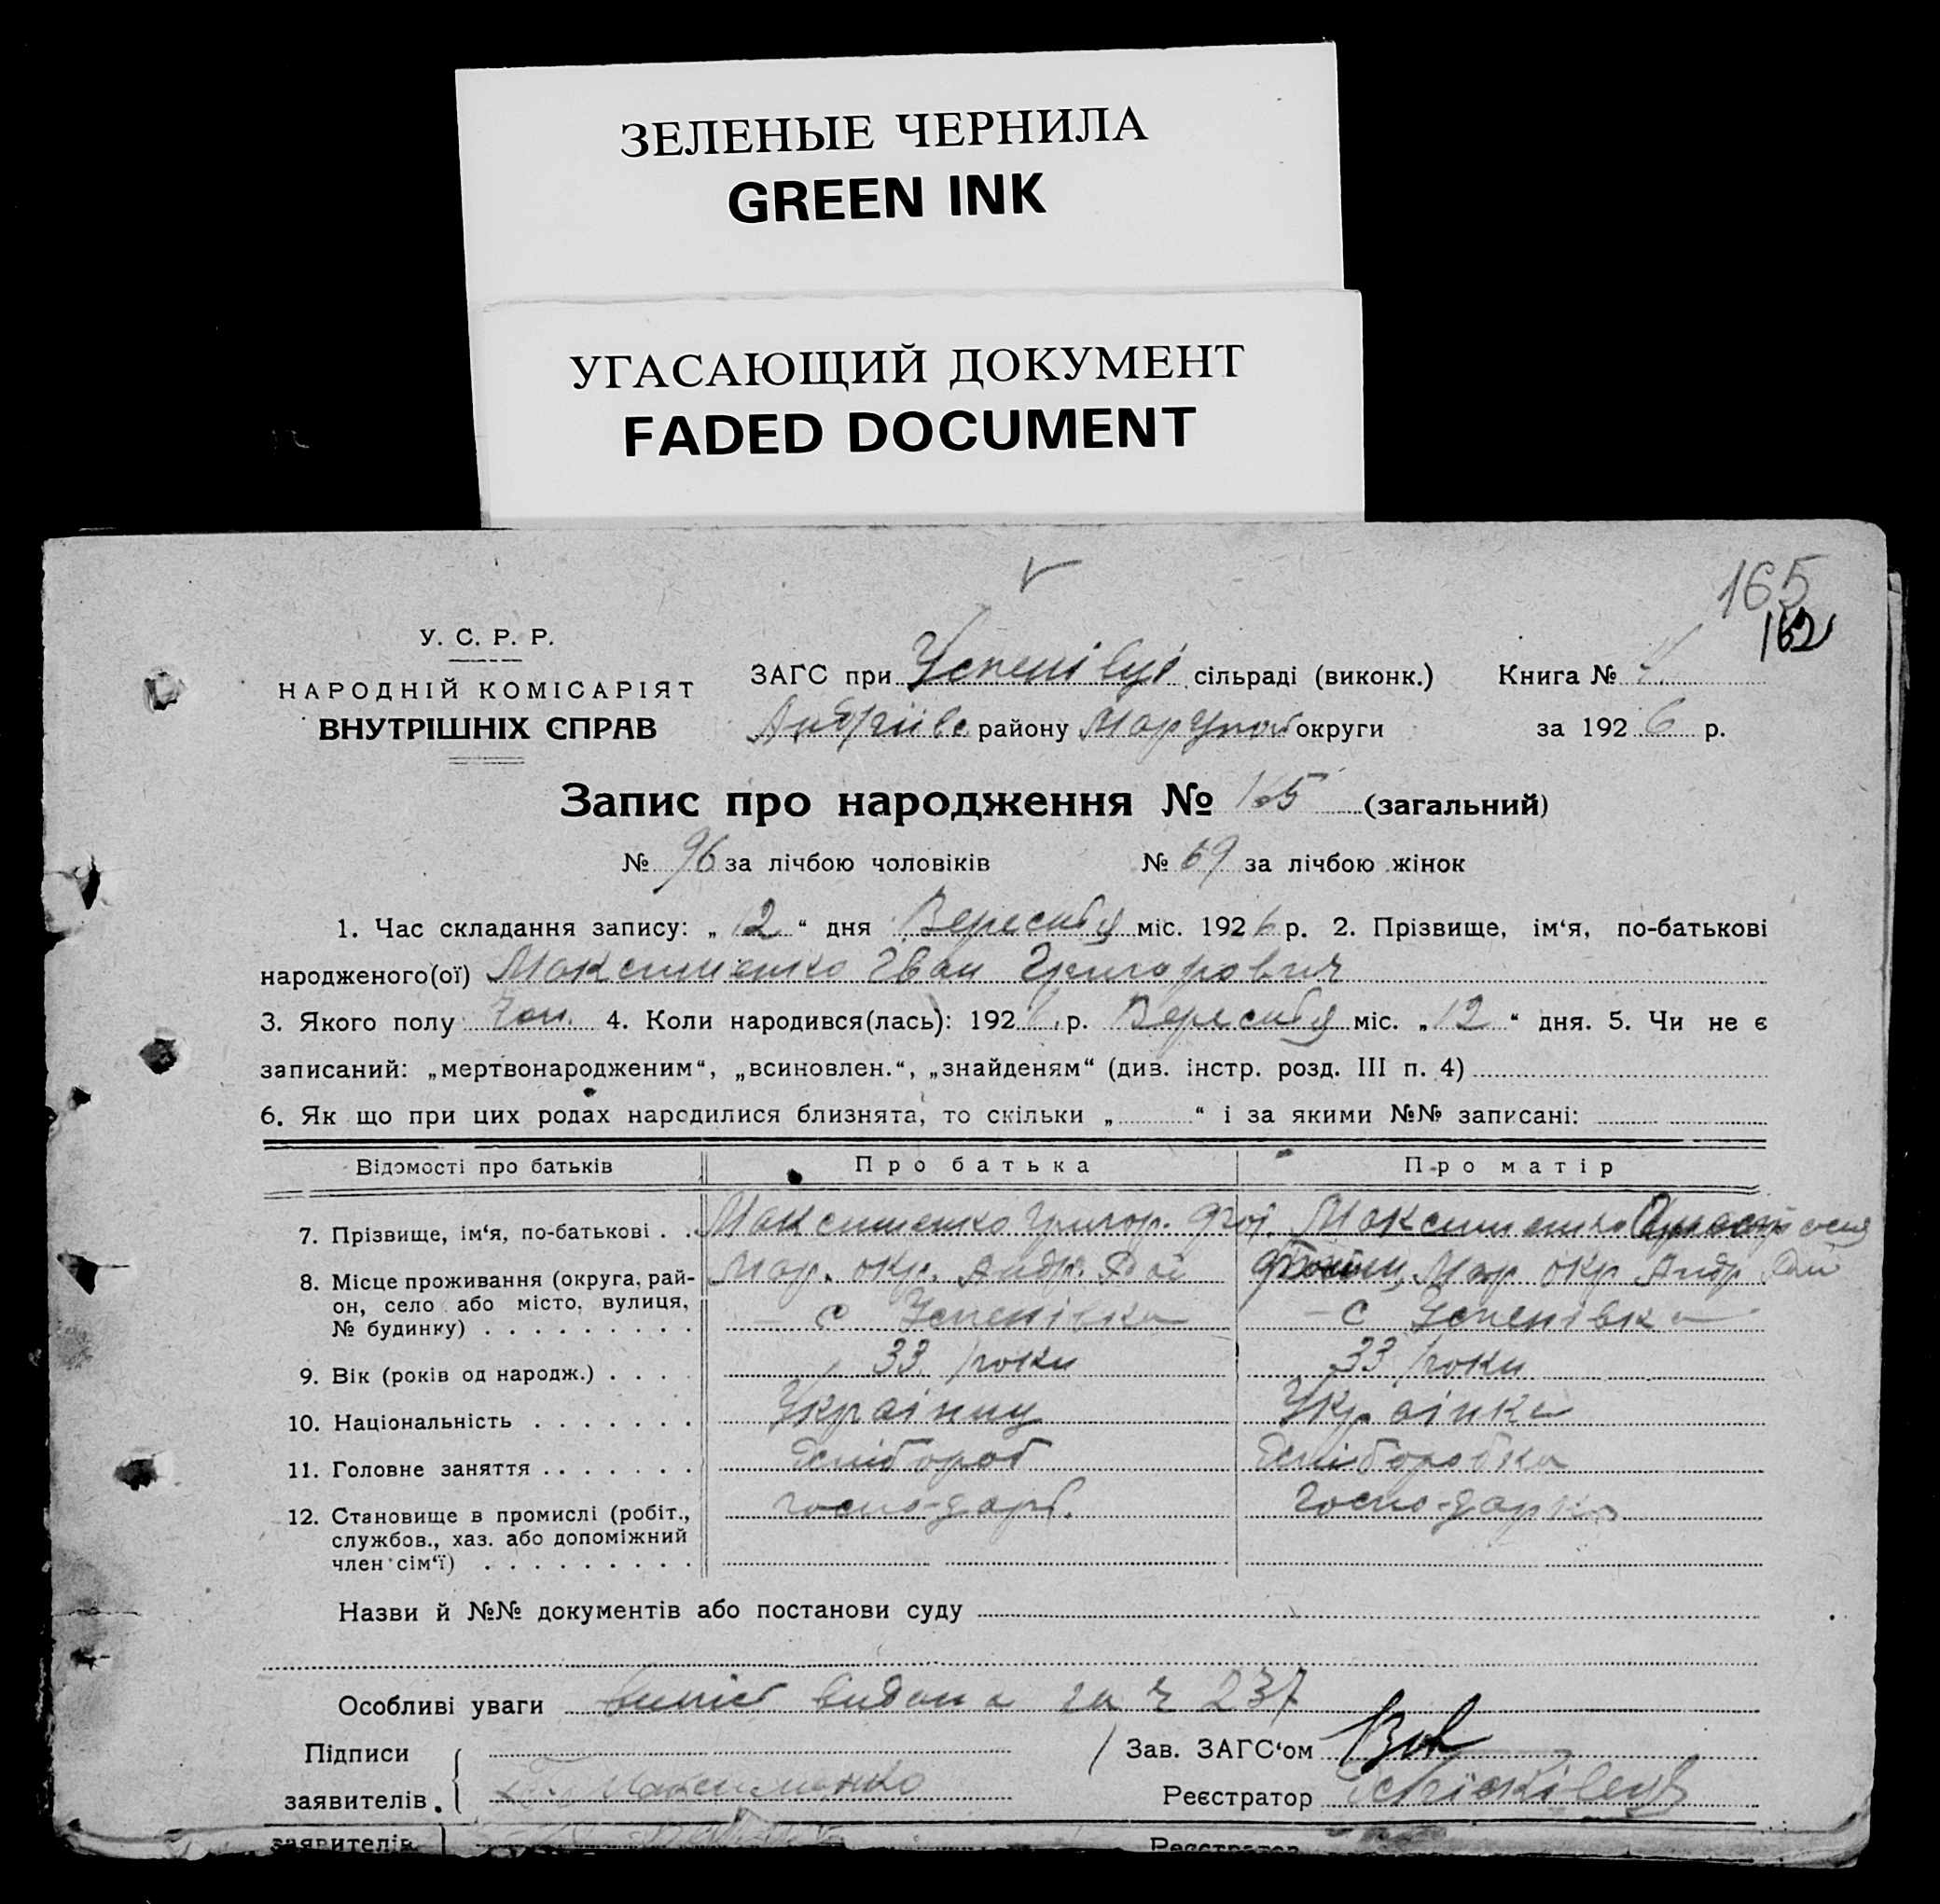 ЗЕЛЕНЫЕ ЧЕРНИЛА
GREEN INK
УГАСАЮЩИЙ ДОКУМЕНТ
FADED DOCUMENT
165
162
У. С. Р. Р.
НАРОДНІЙ КОМІСАРІЯТ
ВНУТРІШНІХ СПРАВ
ЗАГС при Успенівці сільраді (виконк.) Книга №
району Маріупол округи за 1926 р.
Запис про народження № 165 (загальний)
№ 96 за лічбою чоловіків № 69 за лічбою жінок
1. Час складання запису: „12“ дня Вересня міс. 1926 р. 2. Прізвище, ім‘я, по-батькові
народженого(ої) Максименко Іван Григорович
3. Якого полу Чол. 4. Коли народився(лась): 1926 р. Вересня міс. „12“ дня. 5. Чи не є
записаний: „мертвонародженим“, „всиновлен.“, „знайденям“ (див. інстр. розд. III п. 4)
6. Як що при цих родах народилися близнята, то скільки „ “ і за якими №№ записані:
Відомості про батьків Про батька Про матір
7. Прізвище, ім‘я, по-батькові . . Максименко Григор. Максименко
8. Місце проживання (округа, рай- Мар. окр. Андр. Мар окр Андр
он, село або місто, вулиця, с Успенівка с Успенівка
№ будинку) . . . . . . . . .
9. Вік (років од народж.) . . . . 33 роки 33 роки
10. Національність . . . . . . . Українец Українка
11. Головне заняття . . . . . . . Хлібороб Хлібборобка
12. Становище в промислі (робіт., госпо-дар. госпо-дарка
службов., хаз. або допоміжний
член сім‘ї) . . . . . . . . .
Назви й №№ документів або постанови суду
Особливі уваги випись видана за ч 237
Підписи Зав. ЗАГС‘ом
заявителів. Максименко Реєстратор
заявителів Реєстратор